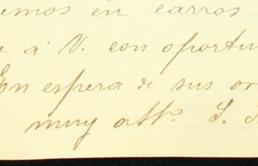 emos en carros
á V. con oportu
En espera de sus or
muy atto. S. S